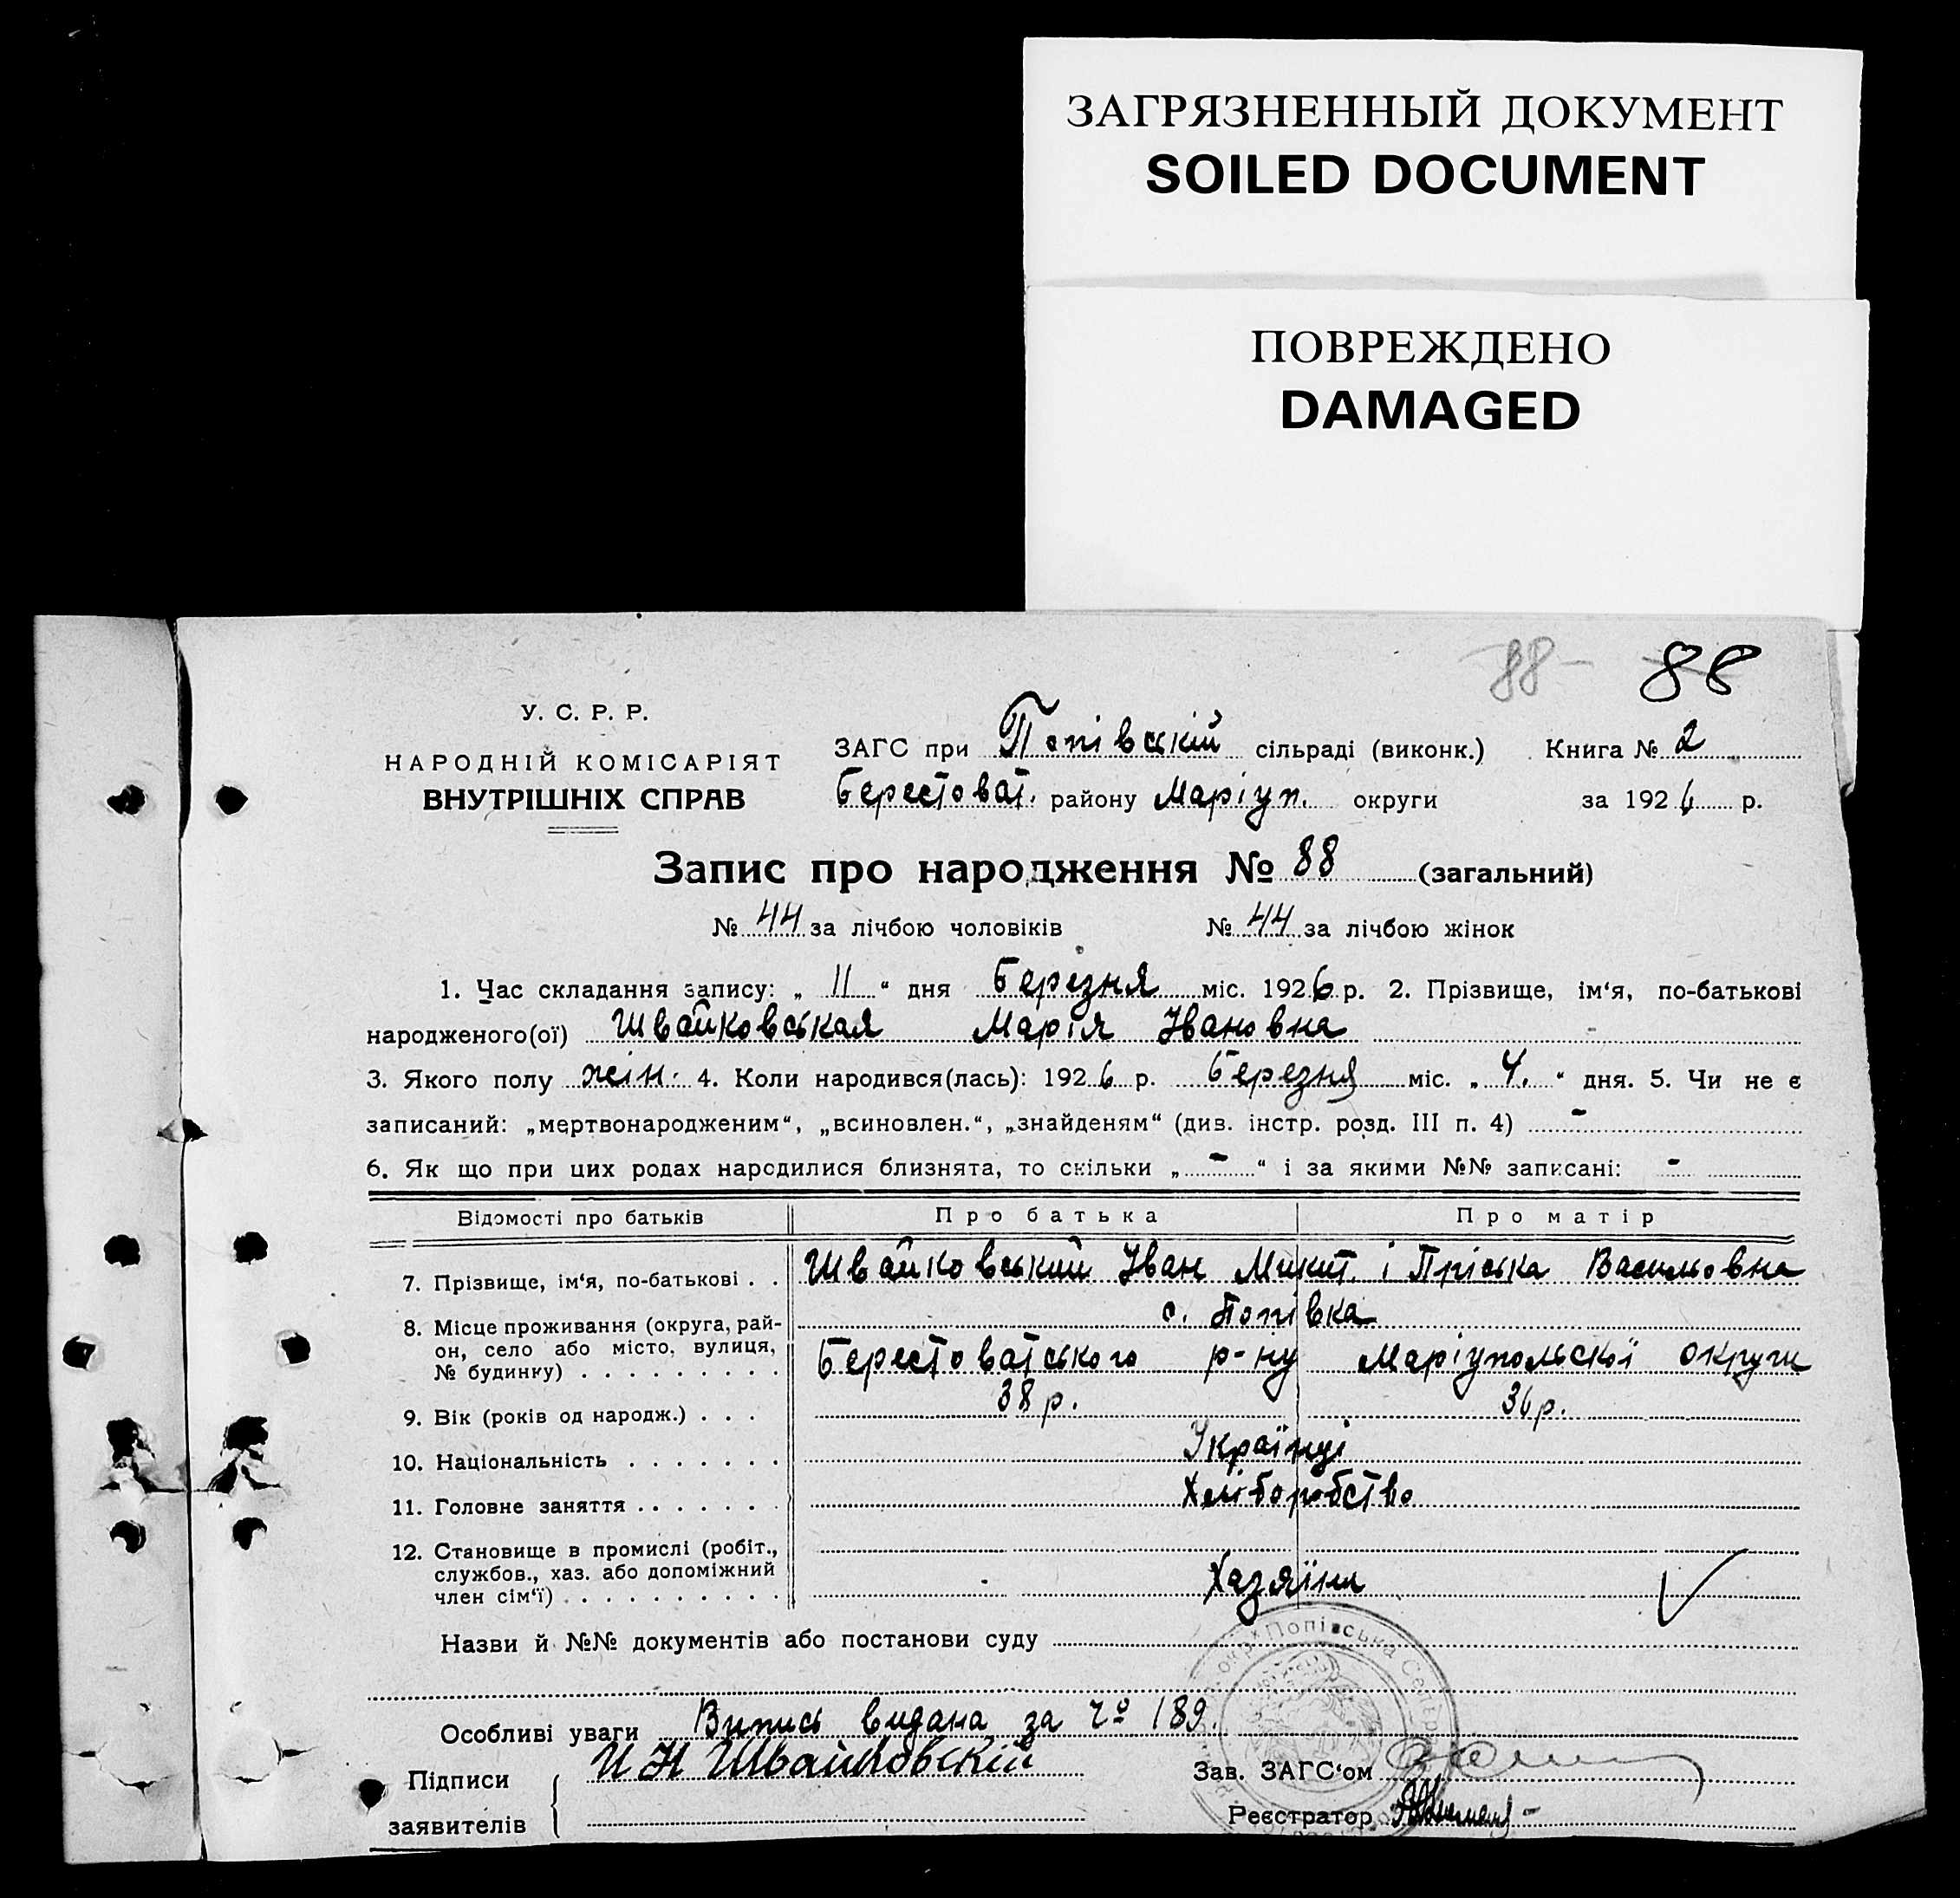 ЗАГРЯЗНЕННЫЙ ДОКУМЕНТ
SOILED DOCUMENT
ПОВРЕЖДЕНО
DAMAGED
88 - 88
У. С. Р. Р.
НАРОДНІЙ КОМІСАРІЯТ
ВНУТРІШНІХ СПРАВ
ЗАГС при Попівській сільраді (виконк.) Книга № 2
Берестоват. району Маріуп. округи за 1926 р.
Запис про народження № 88 (загальний)
№ 44 за лічбою чоловіків № 44 за лічбою жінок
1. Час складання запису: „ 11 “ дня Березня міс. 1926 р. 2. Прізвище, ім‘я, по-батькові
народженого(ої) Швайковськая Марія Івановна
3. Якого полу жін. 4. Коли народився(лась): 1926 р. Березня міс. „ 4. “ дня. 5. Чи не є
записаний: „мертвонародженим“, „всиновлен.“, „знайденям“ (див. інстр. розд. III п. 4) -
6. Як що при цих родах народилися близнята, то скільки „ - “ і за якими №№ записані: -
Відомості про батьків Про батька Про матір
7. Прізвище, ім‘я, по-батькові . . Швайковський Іван Микит. і Пріська Васильовна
8. Місце проживання (округа, рай-
он, село або місто, вулиця,
№ будинку) . . . . . . . . .
с. Попівка
Берестоватського р-ну Маріупольської округи
9. Вік (років од народж.) . . . 38 р. 36 р.
10. Національність . . . . . . . Українці
11. Головне заняття . . . . . . . Хліборобство
12. Становище в промислі (робіт.,
службов., хаз. або допоміжний
член сім‘ї) . . . . . . . . . . Хазяїни
Назви й №№ документів або постанови суду
Попівська Сельр
Особливі уваги Випись видана за № 189.
Підписи И Н Швайковскій Зав. ЗАГС‘ом
заявителів Реєстратор